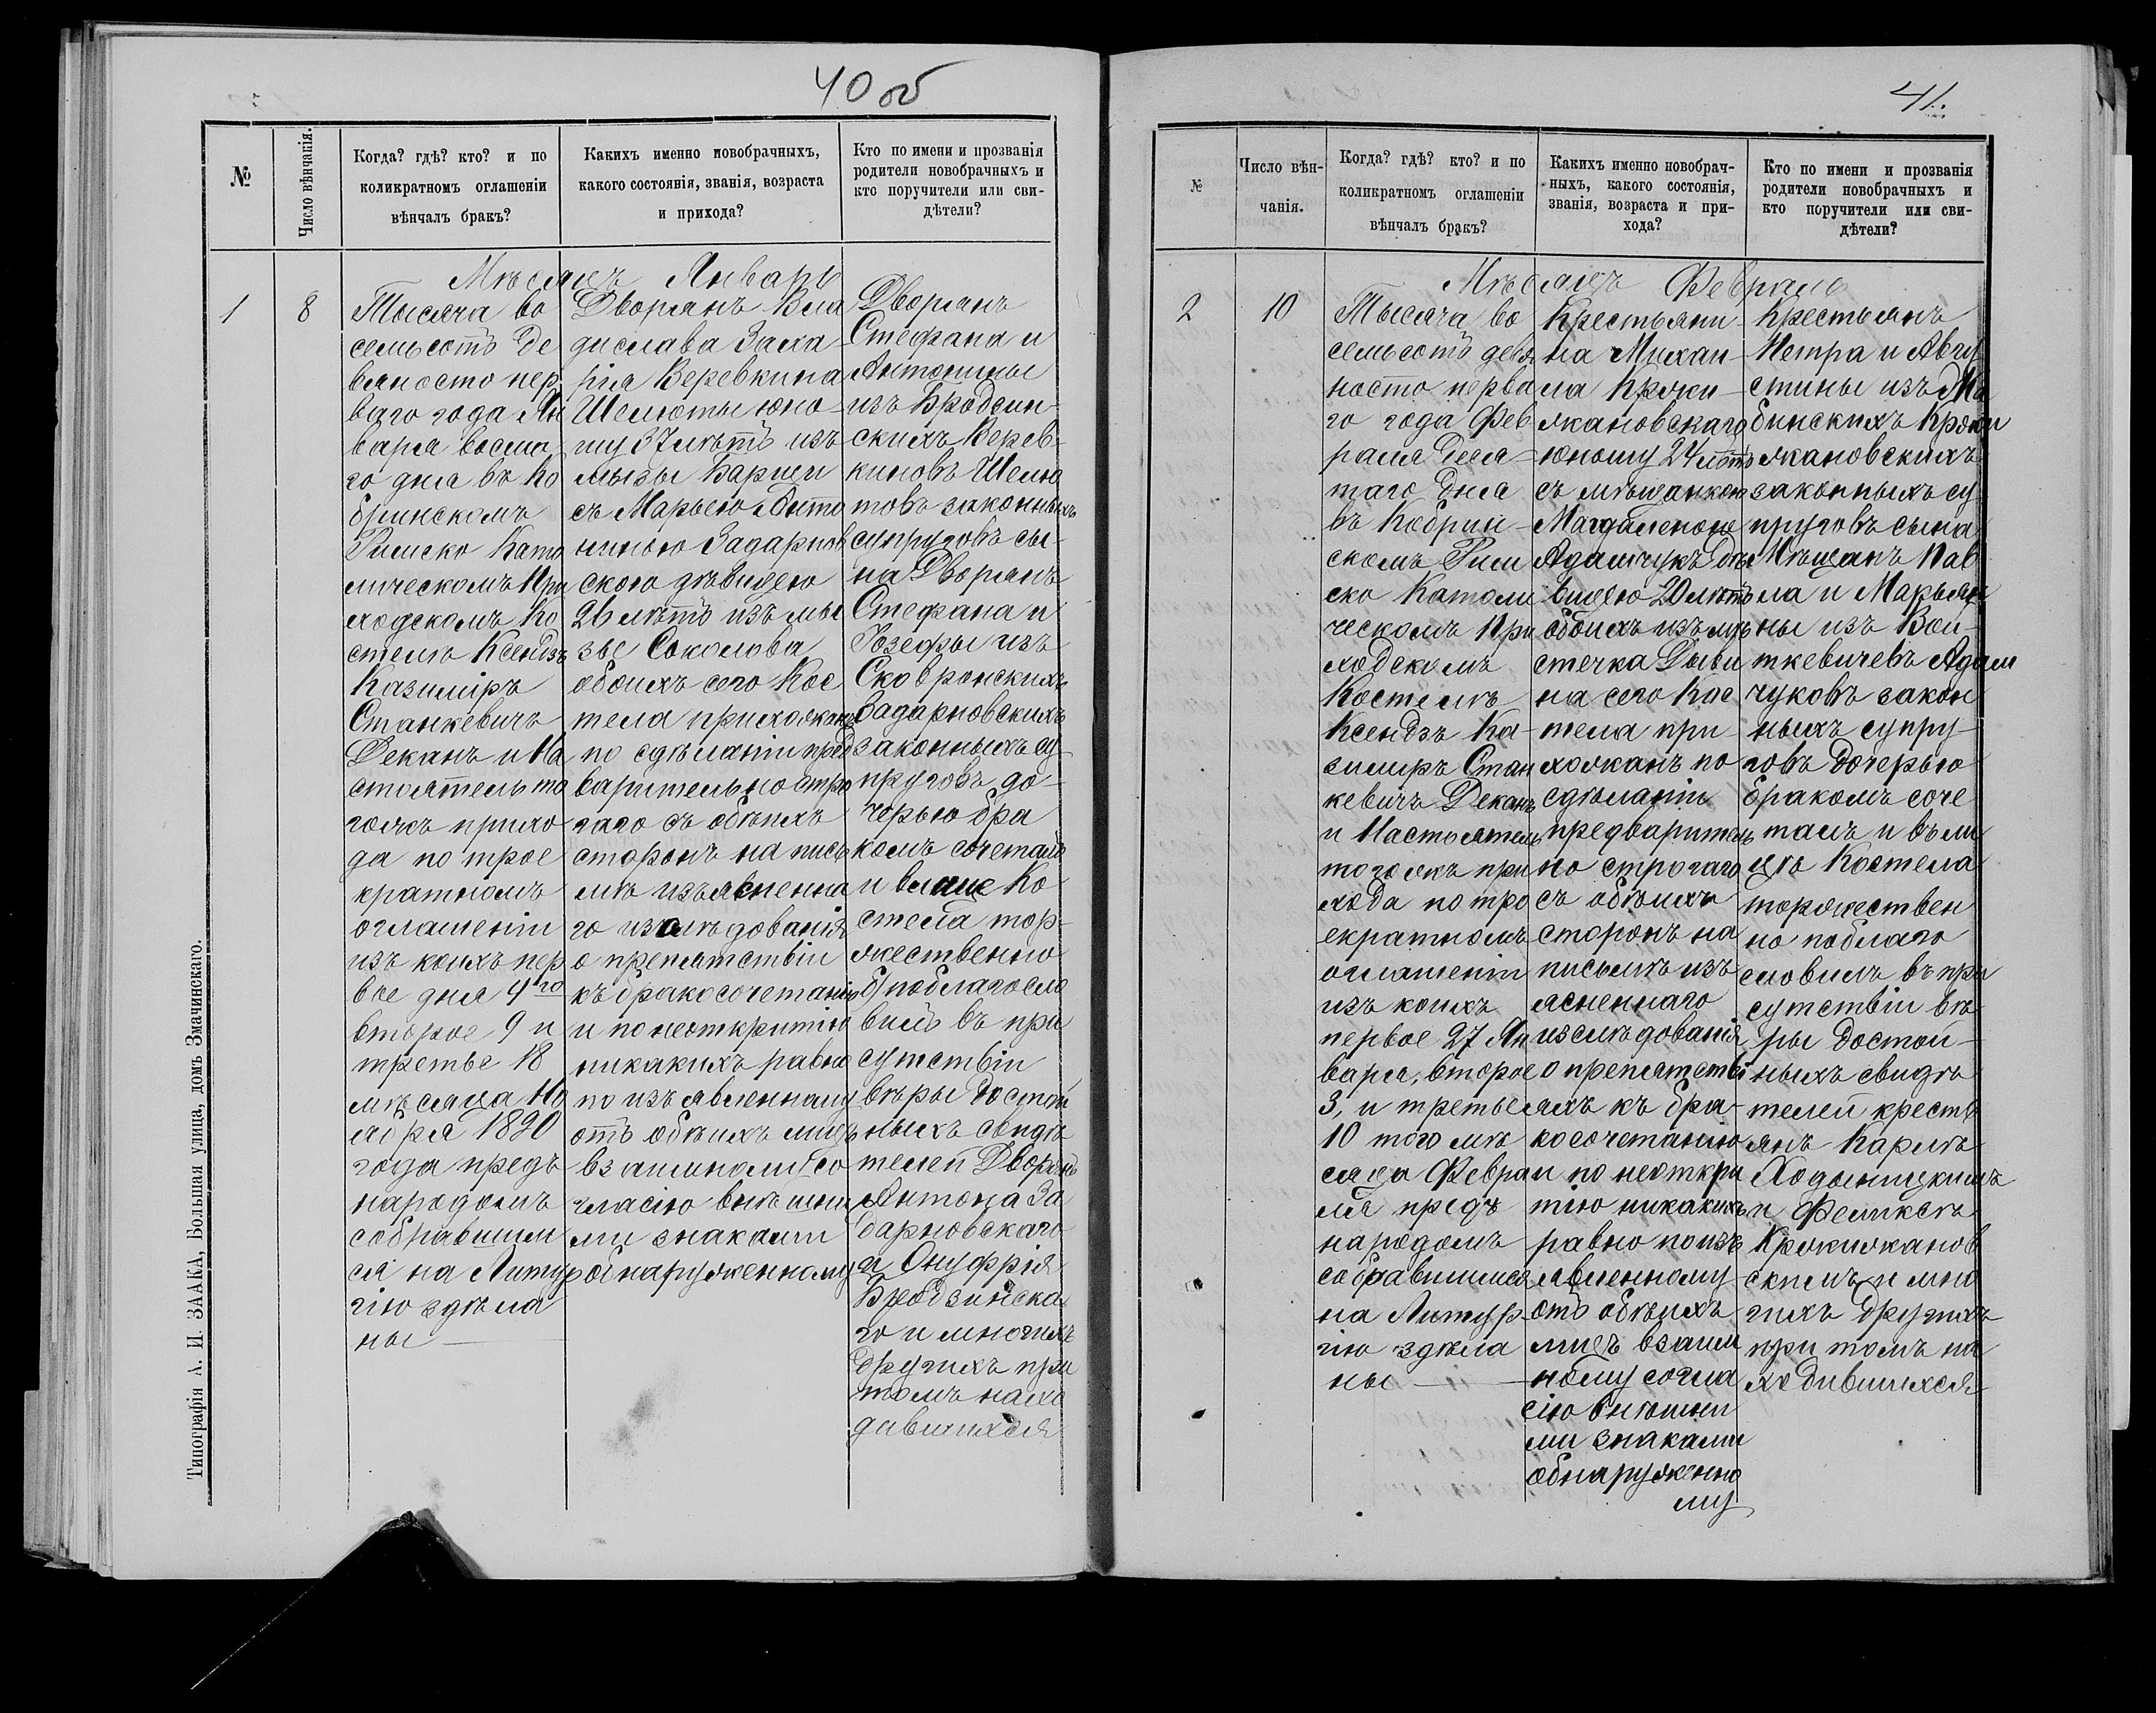 40 об
№
Число вѣнчанія.
Когда? гдѣ? кто? и по
коликратномъ оглашеніи
вѣнчалъ бракъ?
Какихъ именно новобрачныхъ,
какого состоянія, званія, возраста
и прихода?
Кто по имени и прозванія
родители новобрачныхъ и
кто поручители или сви-
дѣтели?
Мѣсяцъ Январь
1
8
Тысяча во
семьсотъ де
вяносто пер
ваго года Ян
варя восьма
го дня въ Ко
бринскомъ
Римско Като
лическомъ При
ходскомъ Ко
стелѣ Ксендзъ
Казиміръ
Станкевичъ
Деканъ и На
стоятель то
гожъ прихо
да по трое
кратномъ
оглашеніи
изъ коихъ пер
вое дня 4го
второе 9 и
третье 18
мѣсяца Но
ября 1890
года предъ
народомъ
собравшим
ся на Литур
гію здѣла
ны
Дворянъ Вла
дислава Заха
рія Веревкина
Шелюты юно
шу 37 лѣтъ изъ
мызы Барщи
съ Марьею Анто
ниною Задарнов
скою дѣвицею
26 лѣтъ изъ мы
зы Соколова
обоихъ сего Кос
тела прихожанъ
по сдѣланіи пред
варительно стро
гаго съ обѣихъ
сторонъ на пись
мѣ изъясненна
го изслѣдованія
о препятствіи
къ бракосочетанію
и по неоткритію
никакихъ равно
по изъявленному
отъ обѣихъ лицъ
взаимному со
гласію внѣшни
ми знаками
обнаруженному
Дворянъ
Стефана и
Антонины
изъ Бродзин-
скихъ Верев-
киновъ Шелю
товъ законныхъ
супруговъ сы-
на Дворянъ
Стефана и
Юзефы изъ
Сковронскихъ
Задарновскихъ
законныхъ су-
пруговъ до-
черью бра
комъ сочеталъ
и влице Ко
стела тор-
жественно
поблагосло
вилъ въ при
сутствіи
вѣры достой
ныхъ свидѣ
телей Дворянъ
Антона За
дарновскаго
и Онуфрія
Бродзинска
го и многихъ
другихъ при
томъ нахо
дившихся
Типографія А. И. ЗААКА, Большая улица, домъ Змачинскаго.
41.
№
Число вѣн-
чанія.
Когда? гдѣ? кто? и по
коликратномъ оглашеніи
вѣнчалъ бракъ?
Какихъ именно новобрач-
ныхъ, какого состоянія,
званія, возраста и при-
хода?
Кто по имени и прозванія
родители новобрачныхъ и
кто поручители или сви-
дѣтели?
Мѣсяцъ Февраль
2
10
Тысяча во
семьсотъ девя
носто перва
го года Фев
раля деся-
таго дня
въ Кобрин-
скомъ Рим
ско Католи
ческомъ При
ходскомъ
Костелѣ
Ксендзъ Ка-
зимиръ Стан
кевичъ Деканъ
и Настоятель
тогожъ при
хода по тро
екратномъ
оглашеніи
изъ коихъ
первое 27 Ян
варя, второе
3, и третье
10 того мѣ
сяца Февра
ля предъ
народомъ
собравшимся
на Литур-
гію здѣла
ны
Крестьяни-
на Михаи-
ла Кржи-
жановскаго
юношу 24 лѣтъ
съ мѣщанкою
Магдаленою
Адамчукъ дѣ
вицею 20 лѣтъ
обоихъ изъ мѣ
стечка Дыви
на сего Кос
тела при-
хожанъ по
сдѣланіи
предваритель
но строгаго
съ обѣихъ
сторонъ на
письмѣ изъ
ясненнаго
изслѣдованія
о препятстві
яхъ къ бра-
косочетанію
и по неоткри
тію никакихъ
равно по изъ
явленному
отъ обѣихъ
лицъ взаим
ному согла
сію внѣшни
ми знаками
обнаруженно
му
Крестьянъ
Петра и Авгу
стины изъ
бинскихъ Кржи
жановскихъ
законныхъ су
пруговъ сына
Мѣщанъ Пав
ла и Марьян
ны изъ Вой-
ткевичевъ Адам
чуковъ закон
ныхъ супру-
говъ дочерью
бракомъ соче
талъ и въ ли
цѣ Костела
торжествен
но поблаго
словилъ въ при
сутствіи вѣ
ры достой-
ныхъ свидѣ
телей кресть
янъ Карлѣ
Ходыницкимъ
и Феликсѣ
Кржижанов
скимъ и мно
гихъ другихъ
при томъ на
ходившихся